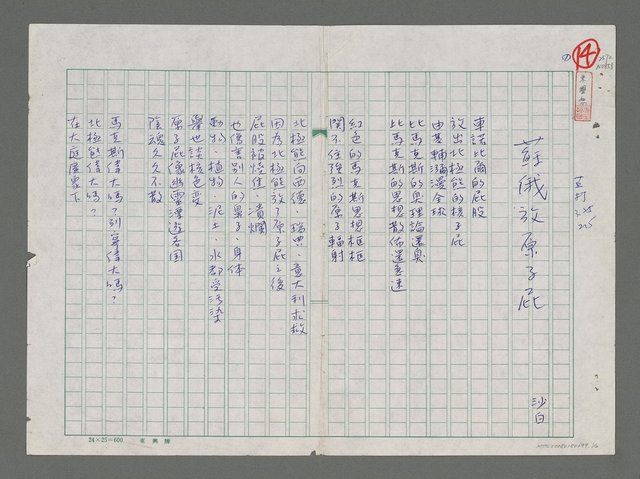 蘇俄放原子屁
沙白
車諾比爾的屁股
放出北極熊的核子屁
由基輔瀰漫全球
比馬克斯的臭理論還臭
比馬克斯的思想散佈還急速
紅色的馬克斯思想框框
関不住強烈的原子輻射
北極熊向西德、瑞典、意大利求救
因為北極熊放了原子屁之後
屁股被烧焦、潰爛
也傷害別人的鼻子、身体
動物、植物、泥土、水都受污染
舉世談核色变
原子屁像幽靈漫遊各国
陰魂久久不散
馬克斯偉大嗎？列寧偉大嗎？
北極熊偉大嗎？
在大庭廣眾下
14
24×25=600